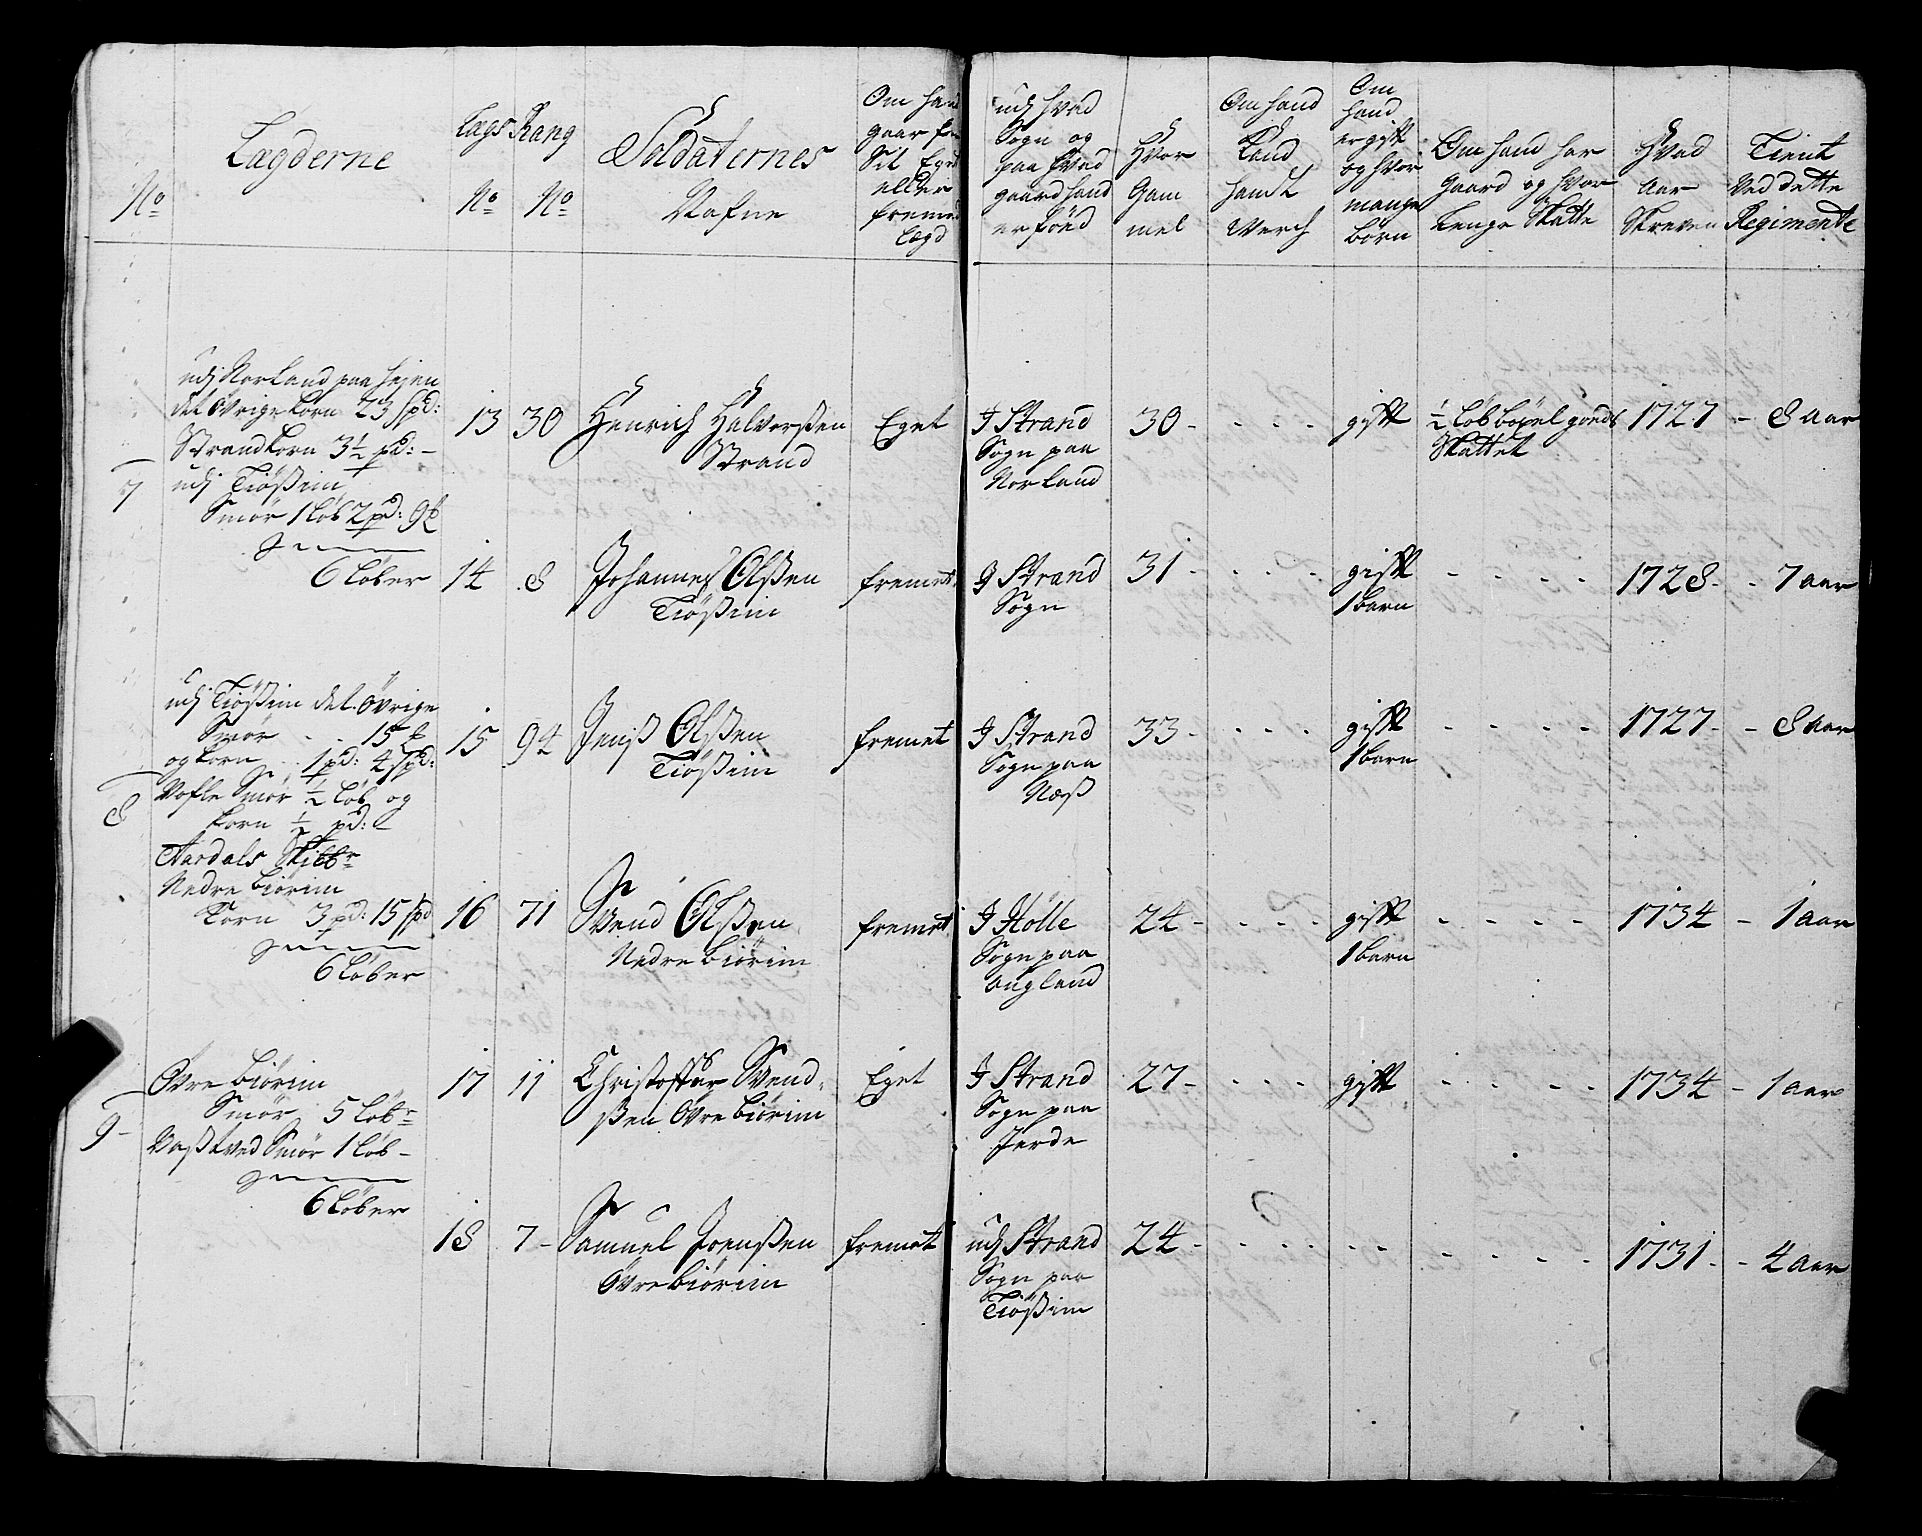 No
Lægderne
Lægs
No
Rang
No
Soldaternes
Nafne
Om hand
gaar for
Sit Eget
eller
fremet
Lægd
udj hvad
Sogn og
paa hvad
gaard hand
er föed
Hvor
Gam
mel
Om hand
kand
handt
Verch
Om
hand
er gift
og hvor
mange
börn
Om hand har
Gaard og hvor
Lenge Skatte
Hvad
Aar
Skreven
Tient
Ved dette
Regimente
7
udj Norland paa hejen
det övrige korn 23 spd:
Strandkorn 3½ pd: -
udj Tiößeim
Smör 1 löb 2 pd: 9
6 löber
13 30 Henrich Halvorßen
Strand
Eget
J Strand
Sogn paa
Norland
30 - - - - -
gift
½ löb böxel gonds
Skattet
1727 - 8 aar
14 8 Johannes Olßen
Tiößeim
fremet
J Strand
Sogn
31 - - - - -
gift
1 barn
- - - -
1728 - - 7 aar
8
udj Tiößeim det övrige
Smör - - 15
og korn 1 pd: 4 spd:
Vofle Smör ½ löb og
korn ½ pd: -
Aardals Skibbr
Nedre Biöreim
korn 3 pd: 15 spd
6 löber
15 94 Jenß Olßen
Tiößeim
fremet
J Strand
Sogn paa
Næß
33 - - - -
gift
1 barn
- - - -
1727 - - 8 aar
16 71 Svend Olßen
Nedre Biöreim
fremet
J Hölle
Sogn paa
Ougland
24 - - - - -
gift
1 barn
- - - - -
1734 - 1 aar
9 -
Övre Biöreim
Smör 5 löbr
Vaßtved Smör 1 löb -
6 löber
17 11 Christoffer Svend-
ßen Övre Biöreim
Eget
J Strand
Sogn paa
Jerde
27 - - - -
gift
- - - - -
1734 - 1 aar
18 7 - Samuel Joenßen
Övre Biöreim
fremet
udj Strand
Sogn paa
Tiößeim
24 - - - - - - -
- - - - -
1731 - - 4 aar